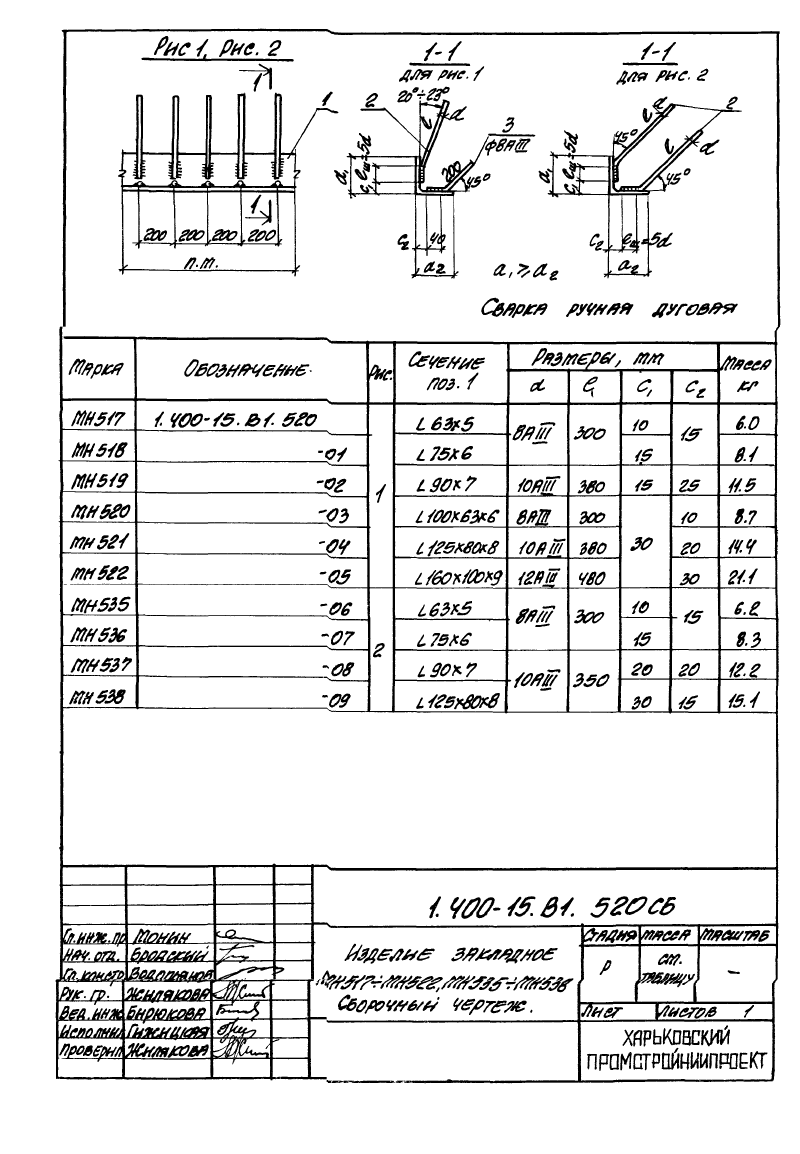 Рис 1, Рис. 2
1
1
1
200 200 200 200
п.м.
1-1
для рис. 1
20°÷23°
2
ℓ
d
3
ф8АIII
200
45°
a₁
c₁
ℓш=5d
c₂
40
a₂
1-1
для рис. 2
2
45°
ℓ
d
ℓ
d
45°
a₁
c₁
ℓш=5d
c₂
ℓш=5d
a₂
a₁ ≥ a₂
Сварка ручная дуговая
Марка Обозначение Рис. Сечение поз. 1 Размеры, мм Масса кг
d ℓ₁ C₁ C₂
МН517 1.400-15.В1.520 1 L63×5 8АIII 300 10 15 6.0
МН518 -01 L75×6 15 8.1
МН519 -02 L90×7 10АIII 380 15 25 11.5
МН520 -03 L100×63×6 8АIII 300 30 10 8.7
МН521 -04 L125×80×8 10АIII 380 20 14.4
МН522 -05 L160×100×9 12АIII 480 30 21.1
МН535 -06 2 L63×5 8АIII 300 10 15 6.2
МН536 -07 L75×6 15 8.3
МН537 -08 L90×7 10АIII 350 20 20 12.2
МН538 -09 L125×80×8 30 15 15.1
1.400-15.В1. 520СБ
Гл.инж.пр Монин
Нач. отд. Бродский
Гл.констр
Рук. гр. Жилякова
Вед.инж Бирюкова
Исполнил Гижицкая
Проверил Жилякова
Изделие закладное
МН517÷МН522, МН535÷МН538
Сборочный чертеж.
Стадия Масса Масштаб
Р см. таблицу –
Лист Листов 1
ХАРЬКОВСКИЙ
ПРОМСТРОЙНИИПРОЕКТ